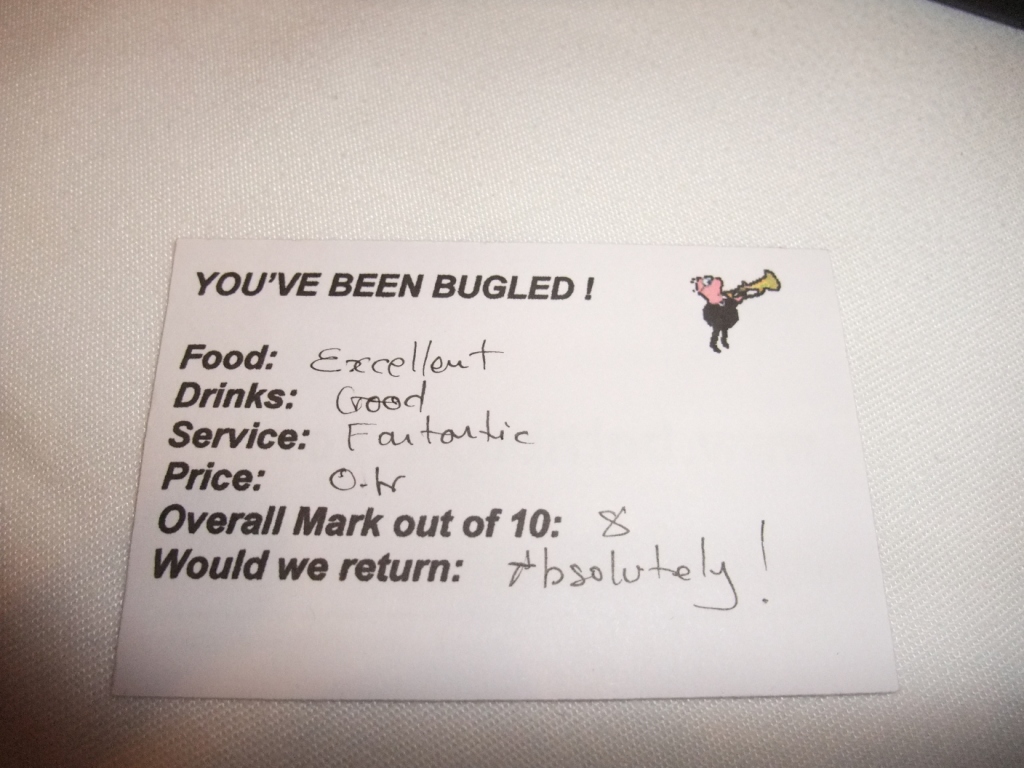 YOU'VE BEEN BUGLED !
Food: Excellent
Drinks: Good
Service: Fantastic
Price:
Overall Mark out of 10: 8
Would we return: Absolutely!